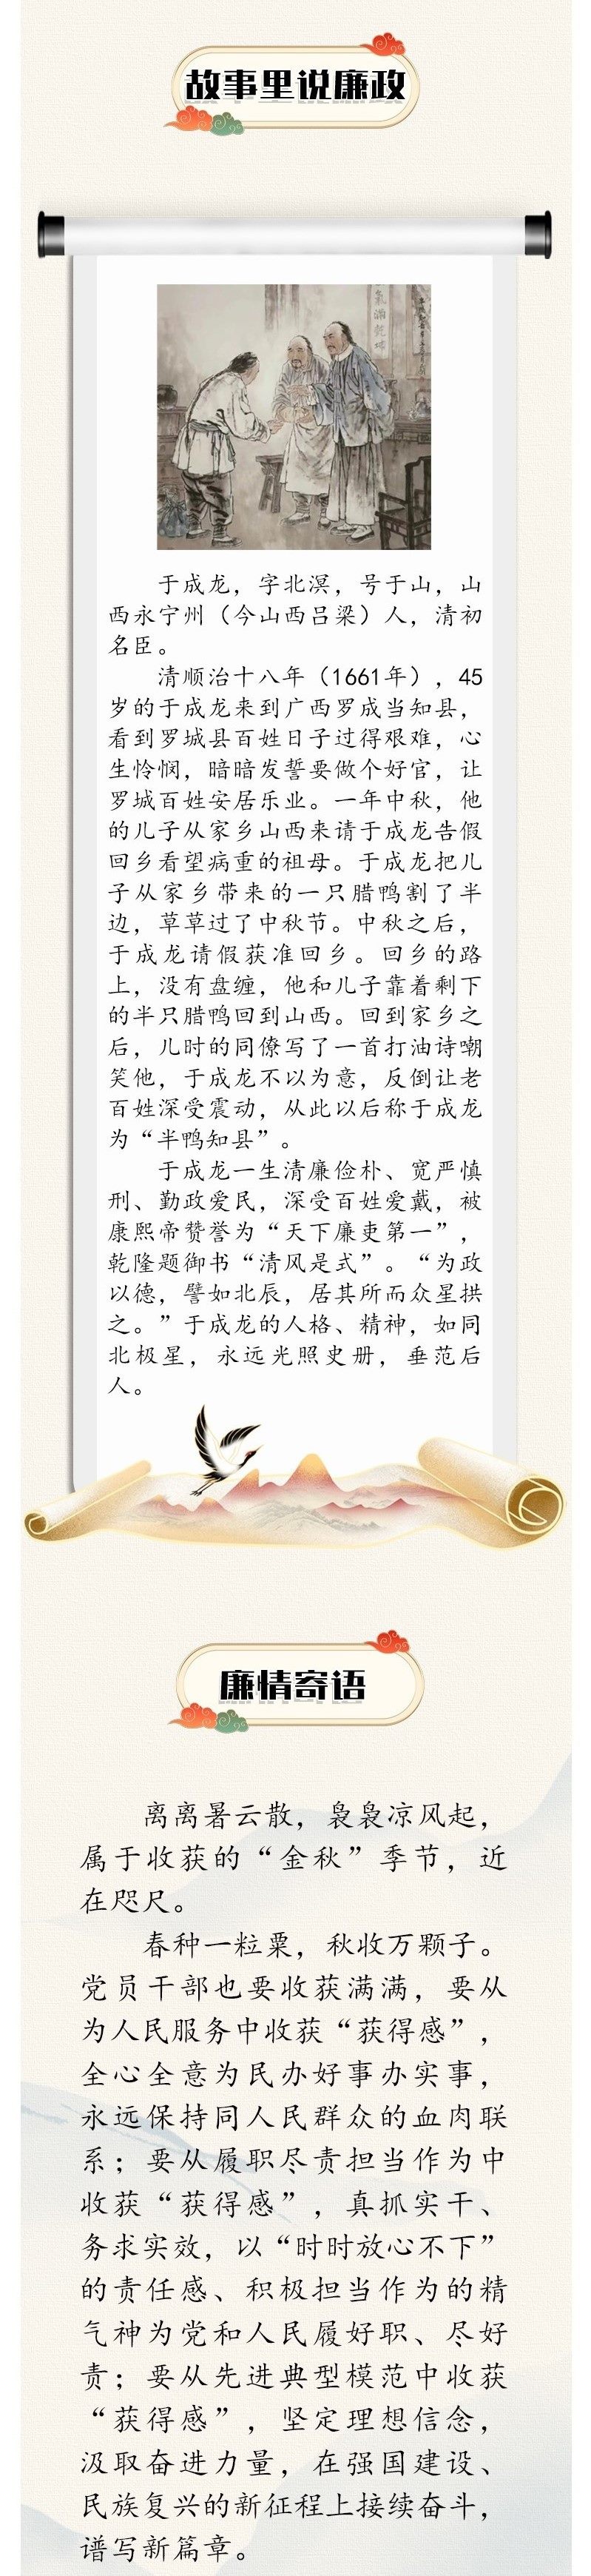 故事里说廉政
于成龙，字北溟，号于山，山
西永宁州（今山西吕梁）人，清初
名臣。
清顺治十八年（1661年），45
岁的于成龙来到广西罗成当知县，
看到罗城县百姓日子过得艰难，心
生怜悯，暗暗发誓要做个好官，让
罗城百姓安居乐业。一年中秋，他
的儿子从家乡山西来请于成龙告假
回乡看望病重的祖母。于成龙把儿
子从家乡带来的一只腊鸭割了半
边，草草过了中秋节。中秋之后，
于成龙请假获准回乡。回乡的路
上，没有盘缠，他和儿子靠着剩下
的半只腊鸭回到山西。回到家乡之
后，儿时的同僚写了一首打油诗嘲
笑他，于成龙不以为意，反倒让老
百姓深受震动，从此以后称于成龙
为“半鸭知县”。
于成龙一生清廉俭朴、宽严慎
刑、勤政爱民，深受百姓爱戴，被
康熙帝赞誉为“天下廉吏第一”，
乾隆题御书“清风是式”。“为政
以德，譬如北辰，居其所而众星拱
之。”于成龙的人格、精神，如同
北极星，永远光照史册，垂范后
人。
廉情寄语
离离暑云散，袅袅凉风起，
属于收获的“金秋”季节，近
在咫尺。
春种一粒粟，秋收万颗子。
党员干部也要收获满满，要从
为人民服务中收获“获得感”，
全心全意为民办好事办实事，
永远保持同人民群众的血肉联
系；要从履职尽责担当作为中
收获“获得感”，真抓实干、
务求实效，以“时时放心不下”
的责任感、积极担当作为的精
气神为党和人民履好职、尽好
责；要从先进典型模范中收获
“获得感”，坚定理想信念，
汲取奋进力量，在强国建设、
民族复兴的新征程上接续奋斗，
谱写新篇章。